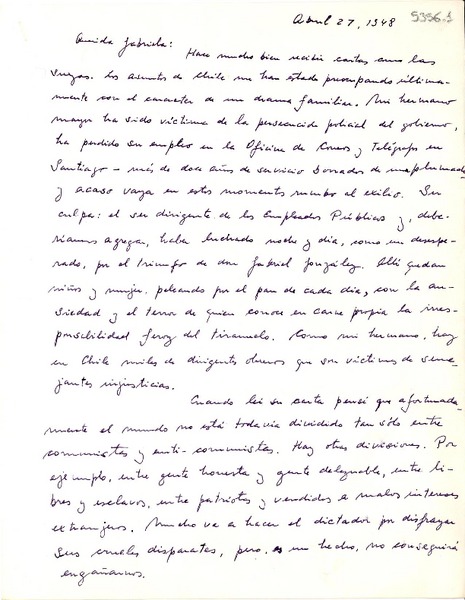 5356.1
Abril 27, 1948
Querida Gabriela:
Hace mucho bien recibir cartas como las
suyas. Los asuntos de Chile me han estado preocupando última-
mente con el caracter de un drama familiar. Mi hermano
mayor ha sido víctima de la persecución policial del gobierno,
ha perdido su empleo en la Oficina de Correos y Telégrafos en
Santiago – más de doce años de servicio borrados de una plumada
y acaso vaya en estos momentos rumbo al exilio. Su
culpa: el ser dirigente de los Empleados Públicos y, debe-
riamos agregar, haber luchado noche y día, como un desespe-
rado, por el triunfo de don Gabriel González. Allí quedan
niños y mujer peleando por el pan de cada día, con la an-
siedad y el terror de quien conoce en carne propia la irres-
ponsabilidad feroz del tiranuelo. Como mi hermano, hay
en Chile miles de dirigentes obreros que son víctimas de seme-
jantes injusticias.
Cuando leí su carta pensé que afortunada-
mente el mundo no está todavía dividido tan sólo entre
comunistas y anti-comunistas. Hay otras divisiones. Por
ejemplo, entre gente honesta y gente deleznable, entre li-
bres y esclavos, entre patriotas y vendidos a malos intereses
extranjeros. Mucho va a hacer el dictador por disfrazar
sus crueles disparates, pero, es un hecho, no conseguirá
engañarnos.